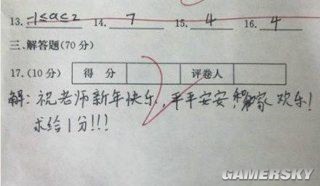 13. -1≤a≤2 14. 7 15. 4 16. 4
三.解答题(70分)
17.(10分) 得 分 评卷人
解:祝老师新年快乐,平平安安,家欢乐!
求给1分!!!
GAMERSKY